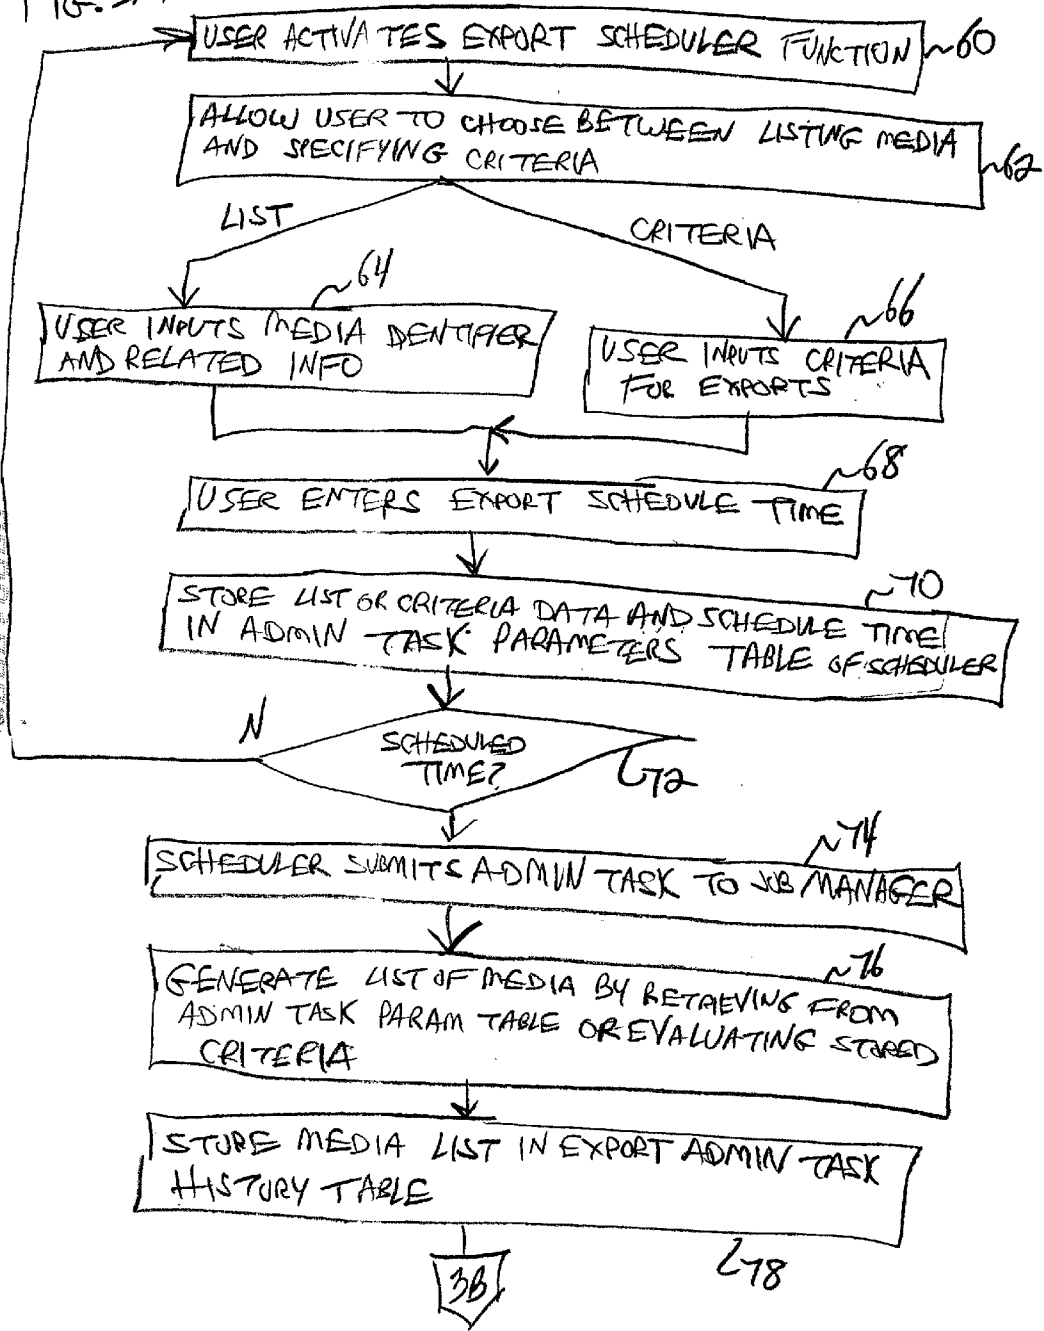 FIG. 3A
USER ACTIVATES EXPORT SCHEDULER FUNCTION
60
ALLOW USER TO CHOOSE BETWEEN LISTING MEDIA
AND SPECIFYING CRITERIA
62
LIST
CRITERIA
64
66
USER INPUTS MEDIA IDENTIFIER
AND RELATED INFO
USER INPUTS CRITERIA
FOR EXPORTS
68
USER ENTERS EXPORT SCHEDULE TIME
70
STORE LIST OR CRITERIA DATA AND SCHEDULE TIME
IN ADMIN TASK PARAMETERS TABLE OF SCHEDULER
N
SCHEDULED
TIME?
72
74
SCHEDULER SUBMITS ADMIN TASK TO JOB MANAGER
76
GENERATE LIST OF MEDIA BY RETRIEVING FROM
ADMIN TASK PARAM TABLE OR EVALUATING STORED
CRITERIA
STORE MEDIA LIST IN EXPORT ADMIN TASK
HISTORY TABLE
78
3B